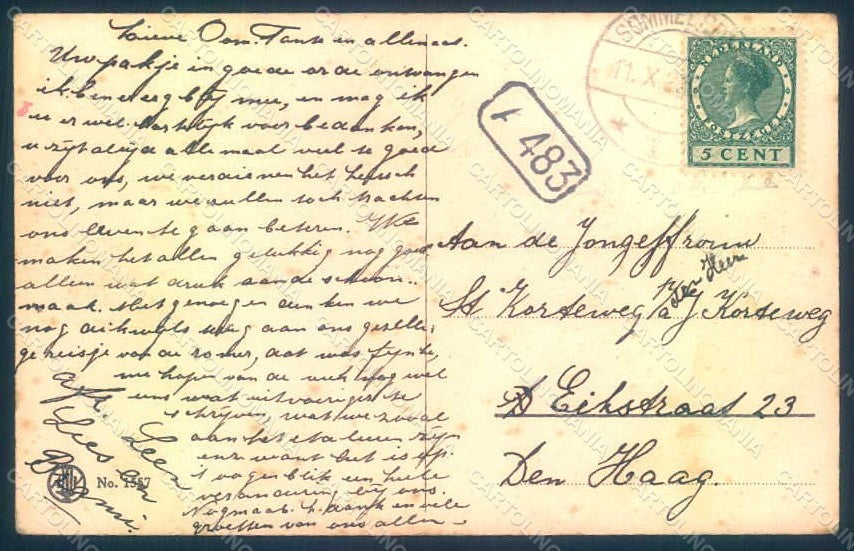 Lieve Oom. Tante en allemaal.
Uw pakje in goede orde ontvangen
ik ben er erg blij mee, en mag ik
u er wel hartelijk voor bedanken,
u zijt altijd allemaal veel te goed
voor ons, we verdienen het heusch
niet, maar we zullen toch trachten
ons leven te gaan beteren. We
maken het allen gelukkig nog goed
allen wat druk aan de schoon..
maak. Met genoegen denken we
nog dikwijls terug aan ons gezellig
reisje van de zomer, dat was fijn he,
we hopen van de week nog wel
eens wat uitvoeriger te
schrijven, want we zooal
aan het zijn
enz want het is op
't oogenblik een heele
verandering bij ons.
Nogmaals h. dank en vele
groeten van ons allen
Leen
Lies en
No. 1557
SOMMELSD
11.X.2
483
NEDERLAND
POSTZEGEL
5 CENT
Aan de Jongeffrouw
den Heer
St Korteweg J Korteweg
Eikstraat 23
Den Haag.
CARTOLINOMANIA